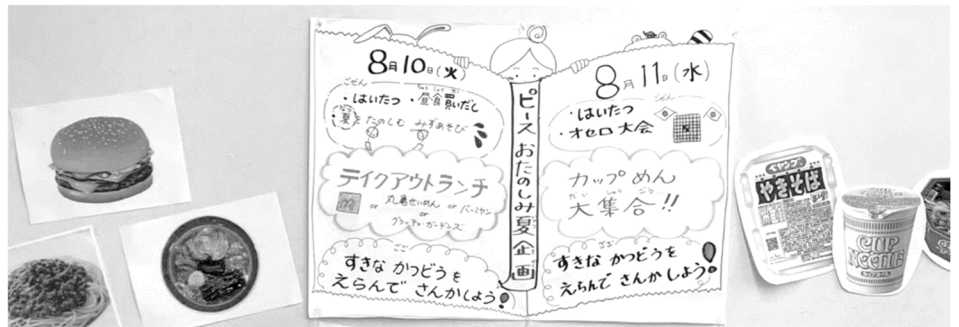 8月10日(火)
ごぜん
・はいたつ ・昼食買いだし
・夏をたのしむ みずあそび
テイクアウトランチ
or 丸亀せいめん or バーミヤン
or
グランチャ・ガーデンズ
ごご
すきな かつどうを
えらんで さんかしよう!
ピース おたのしみ 夏 企画
8月11日(水)
ごぜん
・はいたつ
・オセロ大会
カップめん
大集合!!
ごご
すきな かつどうを
えらんで さんかしよう!
ペヤング
やきそば
CUP
NOODLE